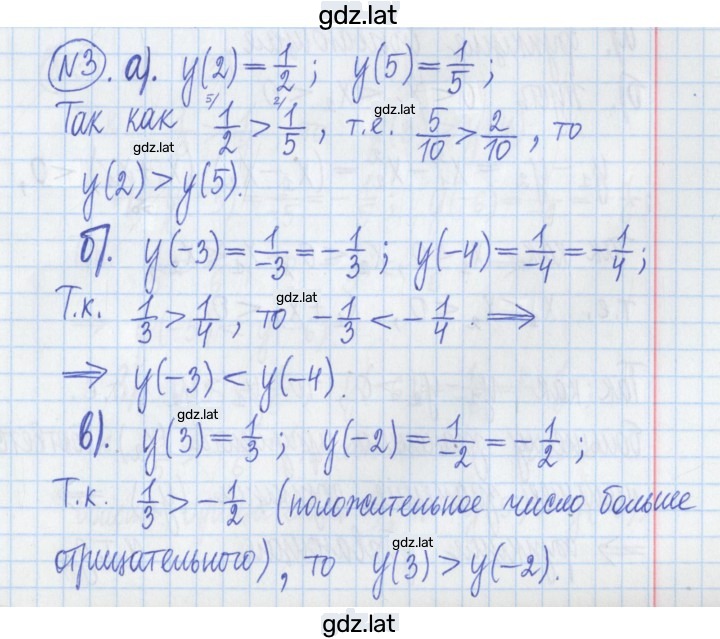 gdz.lat
№3. а). y(2) = 1/2; y(5) = 1/5;
Так как 5/ 1/2 > 2/ 1/5, т.е. 5/10 > 2/10, то
gdz.lat
y(2) > y(5).
б). y(-3) = 1/-3 = -1/3; y(-4) = 1/-4 = -1/4;
gdz.lat
Т.к. 1/3 > 1/4, то -1/3 < -1/4. ⟹
⟹ y(-3) < y(-4).
gdz.lat
в). y(3) = 1/3; y(-2) = 1/-2 = -1/2;
Т.к. 1/3 > -1/2 (положительное число больше
gdz.lat
отрицательного), то y(3) > y(-2).
gdz.lat